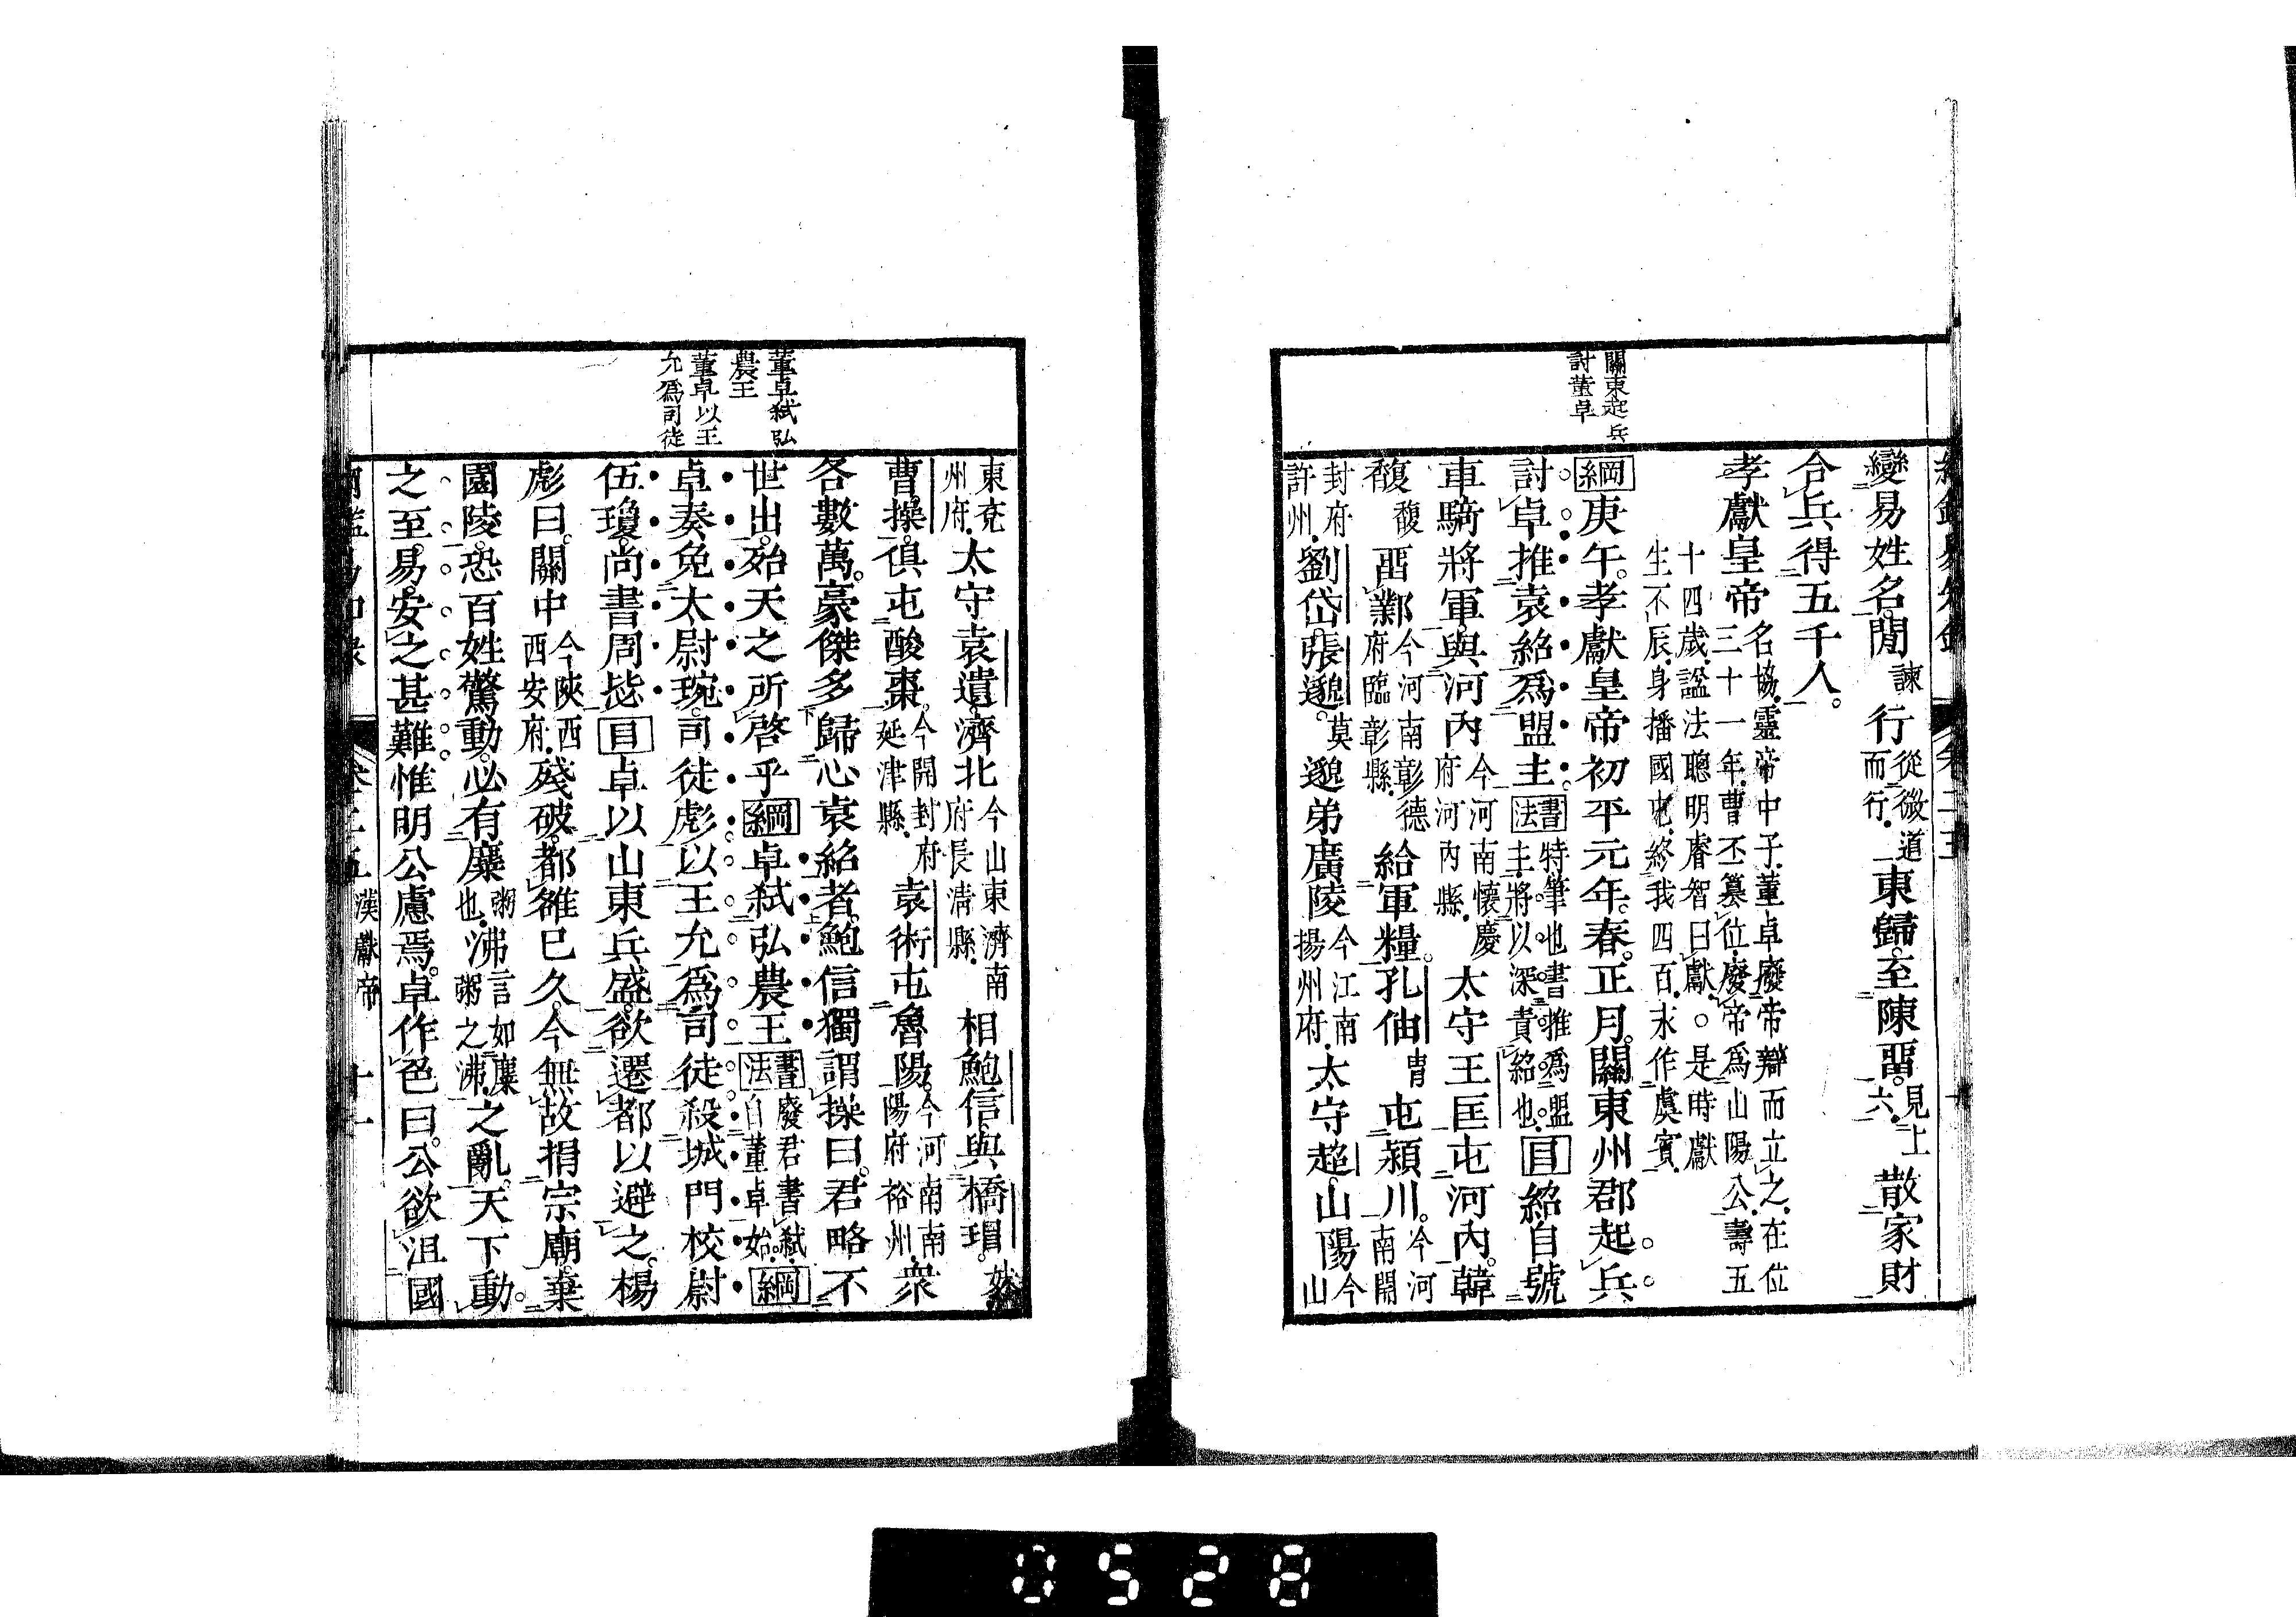 關東起兵
討董卓
變易姓名。閒諫行從微道而行．東歸。至陳畱。見上六．散家財
合兵得五千人。
孝獻皇帝名協．靈帝中子．董卓廢帝辯而立之．在位三十一年．曹丕篡位．廢帝爲山陽公．壽五
十四歲．諡法聰明睿智曰獻．○是時獻生不辰．身播國屯．終我四百．永作虞賓．
綱庚午。孝獻皇帝初平元年。春。正月。關東州郡起兵
討卓推袁紹爲盟主。書法特筆也書推爲盟主．將以深責紹也．目紹自號
車騎將軍。與河內今河南懷慶府河內縣．太守王匡屯河內。韓
馥馥畱鄴今河南彰德府臨彰縣．給軍糧。孔伷冑屯潁川。今河南開
封府許州．劉岱。張邈。莫邈弟廣陵今江南揚州府．太守超。山陽今山
董卓弑弘
農王
董卓以王
允爲司徒
東兗州府．太守袁遺。濟北今山東濟南府長清縣．相鮑信。與橋瑁。妹
曹操。俱屯酸棗。今開封府延津縣．袁術屯魯陽。今河南南陽府裕州．衆
各數萬。豪傑多歸心袁紹者。鮑信獨謂操曰。君略不
世出。殆天之所啓乎綱卓弑弘農王書法廢君．書弑．自董卓始．綱
卓奏免太尉琬。司徒彪。以王允爲司徒。殺城門校尉
伍瓊。尚書周毖目卓以山東兵盛。欲遷都以避之。楊
彪曰。關中今陝西西安府．殘破。都雒已久。今無故捐宗廟。棄
園陵。恐百姓驚動。必有糜粥也．沸言如糜粥之沸．之亂。天下動。
之至易。安之甚難惟明公慮焉。卓作色曰。公欲沮國
漢獻帝　十一
0528